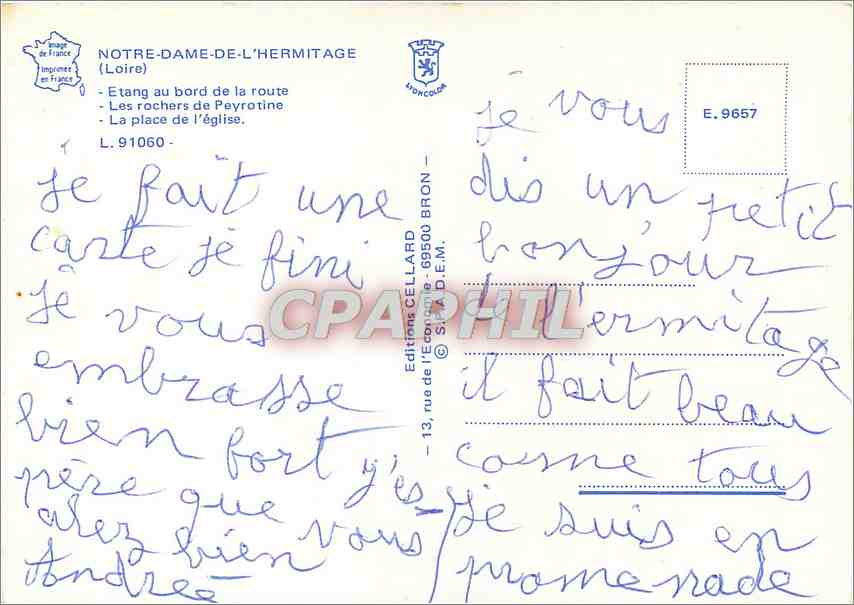 Image
de France
Imprimée
en France
NOTRE-DAME-DE-L'HERMITAGE
(Loire)
- Etang au bord de la route
- Les rochers de Peyrotine
- La place de l'église.
L. 91060 -
LYONCOLOR
E. 9657
Editions CELLARD
- 13, rue de l'Economie - 69500 BRON -
© S.P.A.D.E.M.
CPAPHIL
je vous
dis un petit
bonjour
de l'ermitage
il fait beau
comme tous
je suis en
promenade
je fait une
carte je fini
je vous
embrasse
bien fort y'es
père que vous
alez bien
Andreé